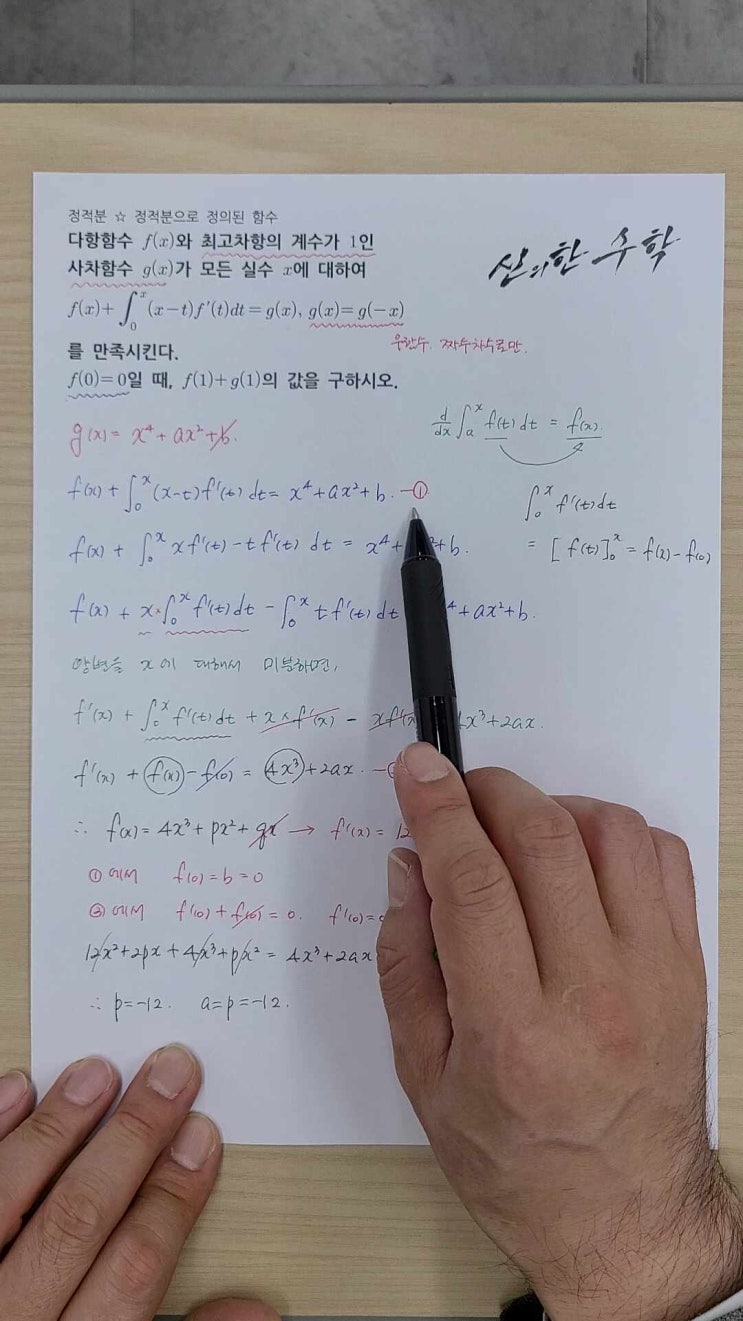 정적분 ☆ 정적분으로 정의된 함수
다항함수 f(x)와 최고차항의 계수가 1인
사차함수 g(x)가 모든 실수 x에 대하여
신의한 수학
f(x)+∫₀ˣ(x-t)f'(t)dt=g(x), g(x)=g(-x)
우함수. 짝수차수로만.
를 만족시킨다.
f(0)=0일 때, f(1)+g(1)의 값을 구하시오.
g(x) = x⁴ + ax² + b.
d/dx ∫ₐˣ f(t) dt = f(x).
f(x) + ∫₀ˣ (x-t) f'(t) dt = x⁴ + ax² + b. -①
∫₀ˣ f'(t) dt
f(x) + ∫₀ˣ x f'(t) - t f'(t) dt = x⁴ + ² + b.
= [ f(t) ]₀ˣ = f(x) - f(0)
f(x) + x × ∫₀ˣ f'(t) dt - ∫₀ˣ t f'(t) dt ⁴ + ax² + b.
양변을 x에 대해서 미분하면,
f'(x) + ∫₀ˣ f'(t) dt + x × f'(x) - xf'(x 4x³ + 2ax.
f'(x) + f(x) - f(0) = 4x³ + 2ax. -
∴ f(x) = 4x³ + px² + qx → f'(x) = 12
① 에서 f(0) = b = 0
② 에서 f'(0) + f(0) = 0. f'(0) =
12x² + 2px + 4x³ + px² = 4x³ + 2ax
∴ p = -12. a = p = -12.